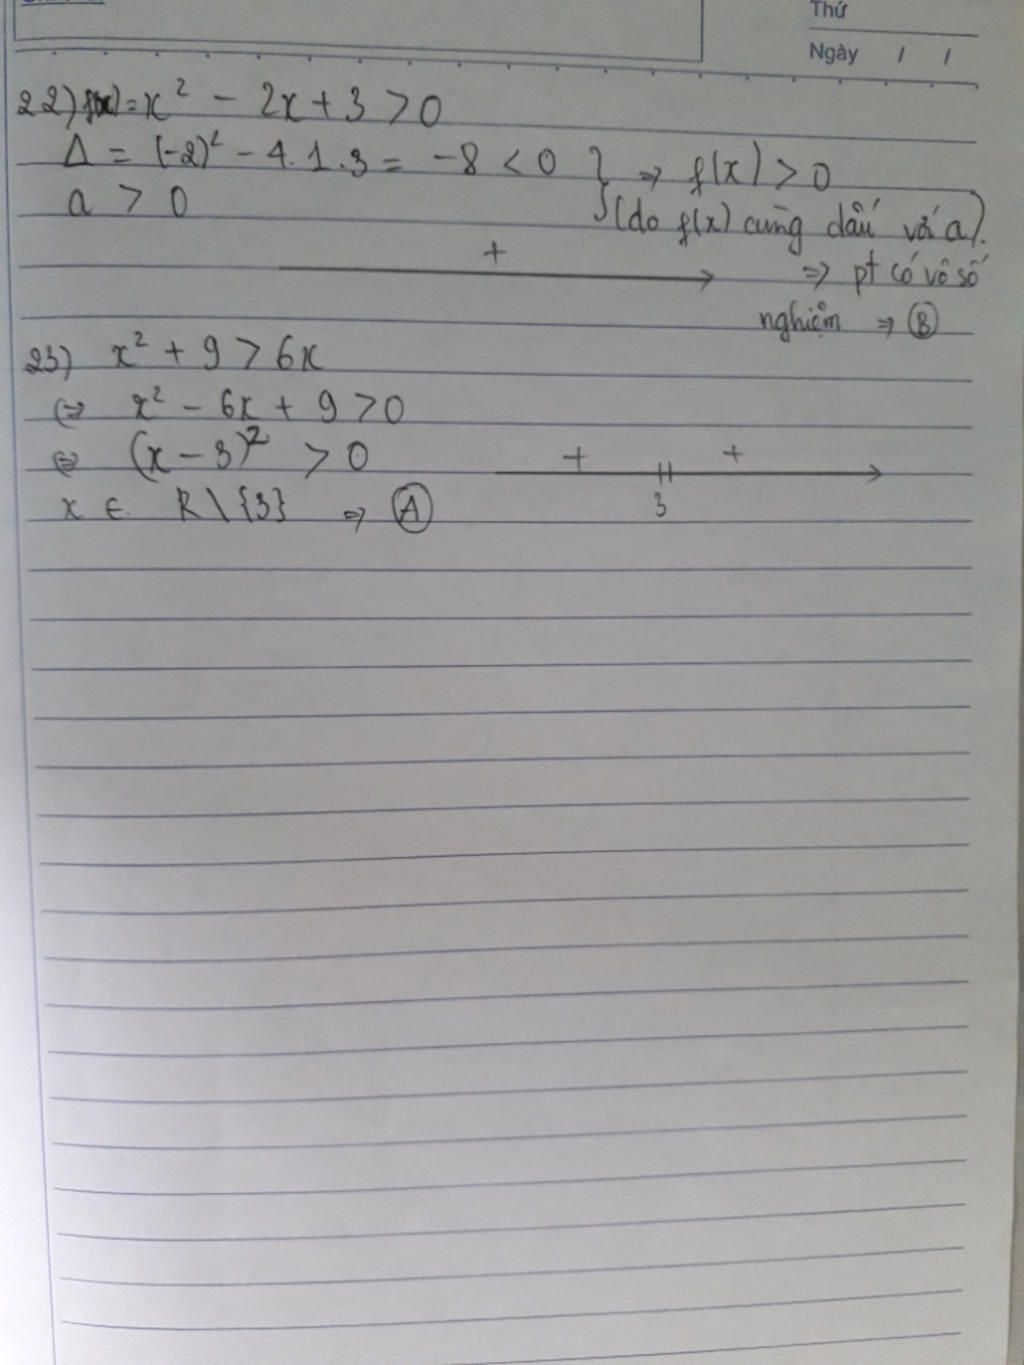 Thứ
Ngày / /
22) f(x) = x² - 2x + 3 > 0
Δ = (-2)² - 4.1.3 = -8 < 0 } ⇒ f(x) > 0
a > 0 (do f(x) cùng dấu với a).
+
⇒ pt có vô số
nghiệm ⇒ Ⓑ
23) x² + 9 > 6x
⇔ x² - 6x + 9 > 0
⇔ (x - 3)² > 0
+ || +
3
x ∈ R \ {3} ⇒ Ⓐ